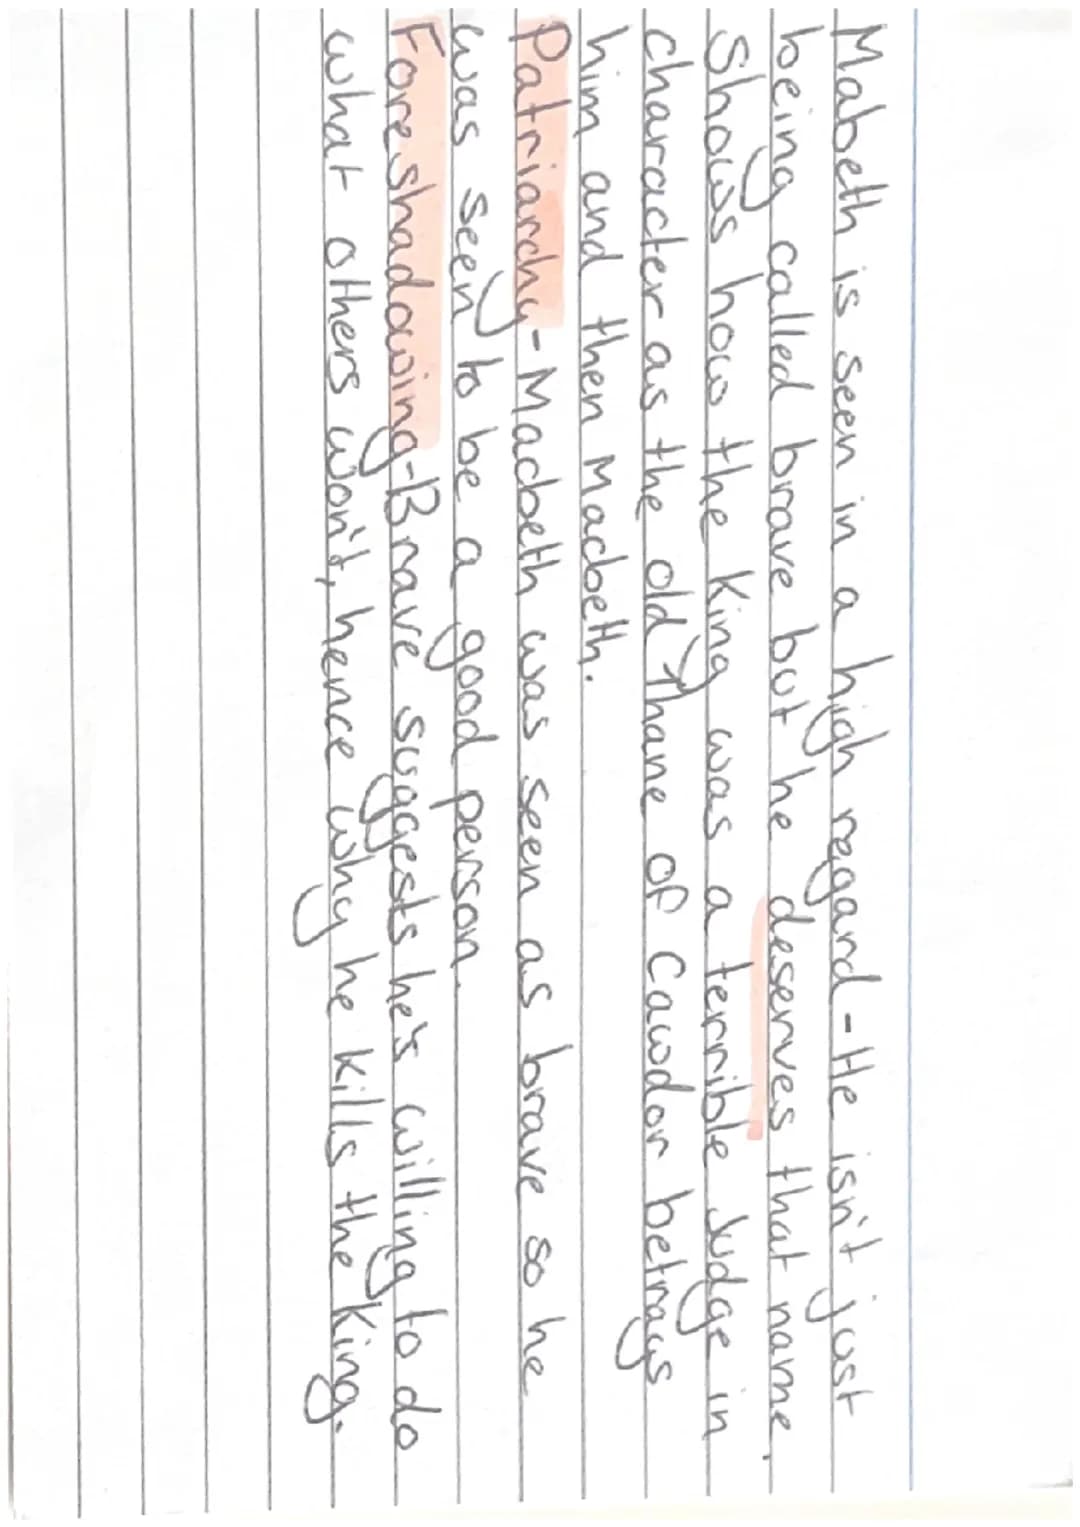 Mabeth is seen in a high regard - He isn't just
being called brave but he deserves that name.
Shows how the King was a terrible judge in
character as the old Thane of Cawdor betrays
him and then Macbeth.
Patriarchy - Macbeth was seen as brave so he
was seen to be a good person.
Foreshadowing - Brave suggests he's willing to do
what others won't, hence why he kills the King.